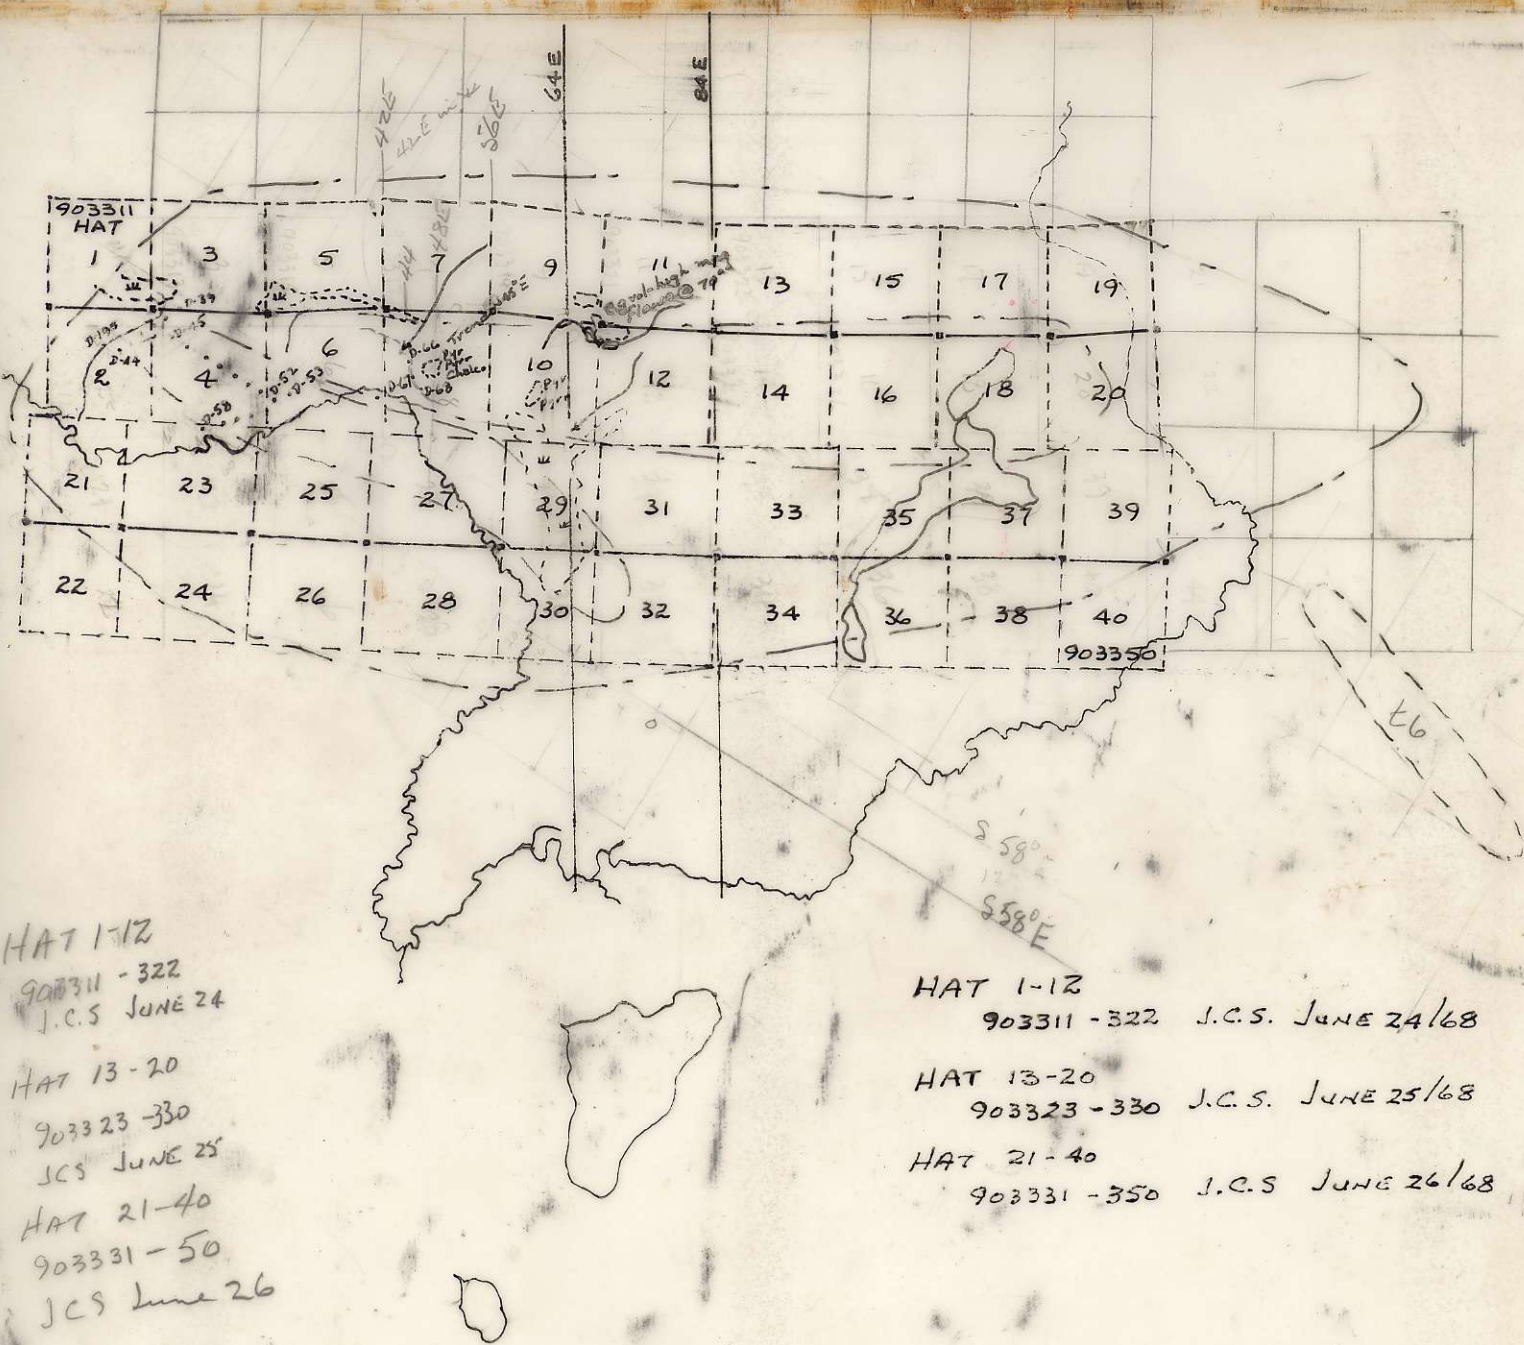 64E
84E
42E
42E
56E
903311
HAT
1
3
5
7
9
11
13
15
17
19
44
48E
D-39
D-45
D-44
2
4
6
D-52
D-53
D-58
D-66
D-67
D-68
Pyr
Chalco
10
Pyr
12
14
16
18
20
21
23
25
27
29
31
33
35
37
39
22
24
26
28
30
32
34
36
38
40
903350
S 58°
S58°E
HAT 1-12
903311 - 322
J.C.S JUNE 24
HAT 13-20
903323-330
JCS JUNE 25
HAT 21-40
903331 - 50
JCS June 26
HAT 1-12
903311 - 322 J.C.S. JUNE 24/68
HAT 13-20
903323 - 330 J.C.S. JUNE 25/68
HAT 21-40
903331 - 350 J.C.S JUNE 26/68